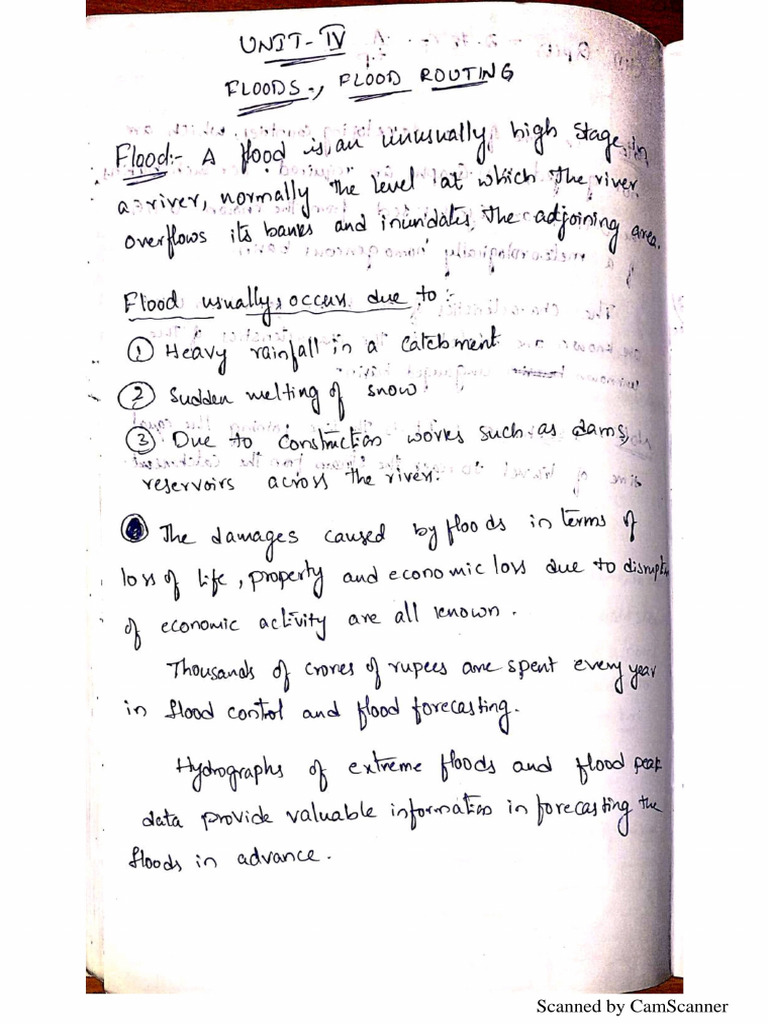 UNIT-IV
FLOODS., FLOOD ROUTING
Flood:- A flood is an unusually high stage in
a river, normally the level at which the river
overflows its banks and inundates the adjoining area.
Flood usually occurs due to:
① Heavy rainfall in a catchment
② Sudden melting of snow.
③ Due to construction works such as dams,
reservoirs across the river.
The damages caused by floods in terms of
loss of life, property and economic loss due to
of economic activity are all known.
Thousands of crores of rupees are spent every year
in flood control and flood forecasting.
Hydrographs of extreme floods and flood peak
data provide valuable information in forecasting the
floods in advance.
Scanned by CamScanner